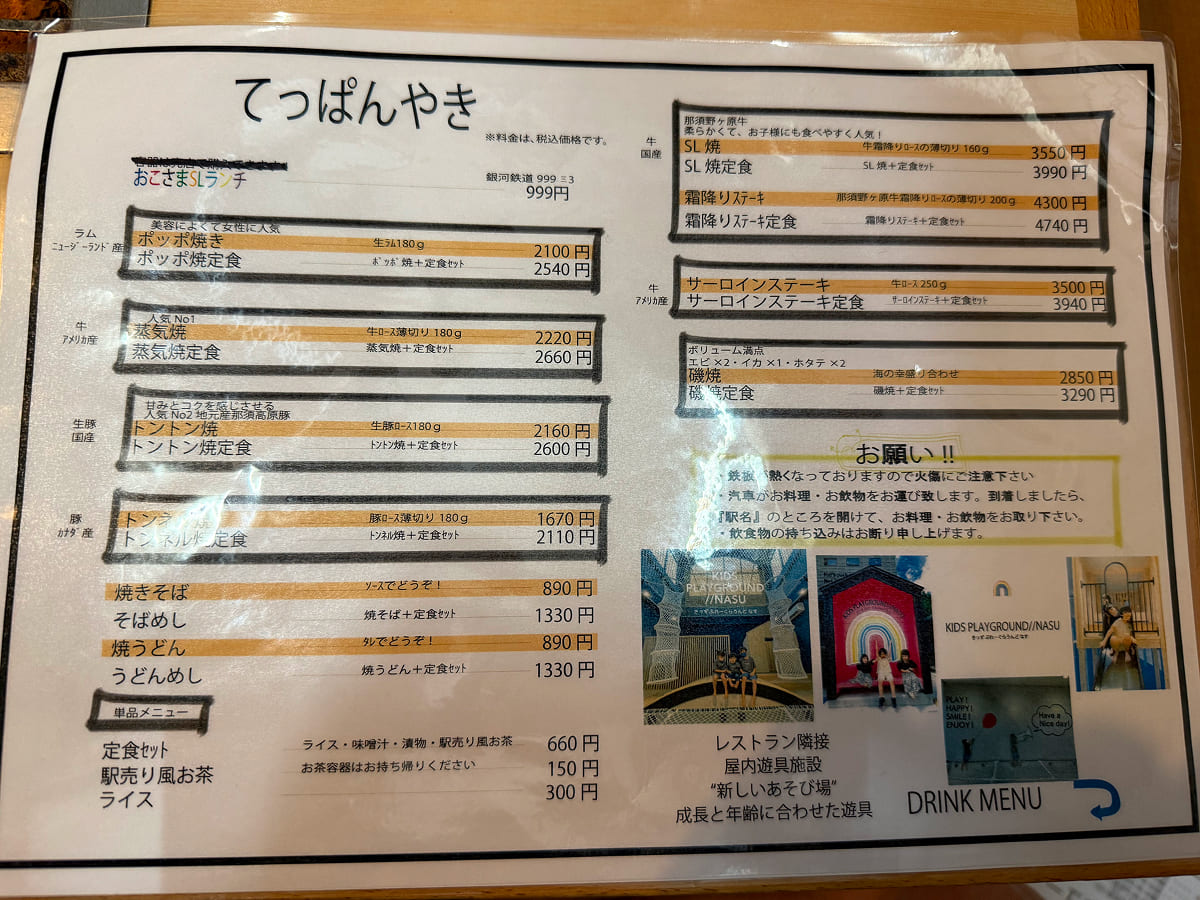 てっぱんやき
※料金は、税込価格です。
おこさまSLランチ
銀河鉄道 999 ニ3
999円
ラム
ニュージーランド産
美容によくて女性に人気
ポッポ焼き 生ラム180g 2100 円
ポッポ焼定食 ポッポ焼+定食セット 2540 円
牛
アメリカ産
人気 No1
蒸気焼 牛ロース薄切り 180g 2220 円
蒸気焼定食 蒸気焼+定食セット 2660 円
生豚
国産
甘みとコクを感じさせる
人気 No2 地元産那須高原豚
トントン焼 生豚ロース180g 2160 円
トントン焼定食 トントン焼+定食セット 2600 円
豚
カナダ産
トンネル焼 豚ロース薄切り 180g 1670 円
トンネル焼定食 トンネル焼+定食セット 2110 円
焼きそば ソースでどうぞ! 890 円
そばめし 焼そば+定食セット 1330 円
焼うどん タレでどうぞ! 890 円
うどんめし 焼うどん+定食セット 1330 円
単品メニュー
定食セット ライス・味噌汁・漬物・駅売り風お茶 660 円
駅売り風お茶 お茶容器はお持ち帰りください 150 円
ライス 300 円
牛
国産
那須野ヶ原牛
柔らかくて、お子様にも食べやすく人気!
SL 焼 牛霜降りロースの薄切り 160g 3550 円
SL 焼定食 SL 焼+定食セット 3990 円
霜降りステーキ 那須野ヶ原牛霜降りロースの薄切り 200g 4300 円
霜降りステーキ定食 霜降りステーキ+定食セット 4740 円
牛
アメリカ産
サーロインステーキ 牛ロース 250g 3500 円
サーロインステーキ定食 サーロインステーキ+定食セット 3940 円
ボリューム満点
エビ ×2・イカ ×1・ホタテ ×2
磯焼 海の幸盛り合わせ 2850 円
磯焼定食 磯焼+定食セット 3290 円
お願い!!
・鉄板が熱くなっておりますので火傷にご注意下さい
・汽車がお料理・お飲物をお運び致します。到着しましたら、
『駅名』のところを開けて、お料理・お飲物をお取り下さい。
・飲食物の持ち込みはお断り申し上げます。
KIDS
PLAYGROUND
//NASU
きっずぷれーぐらうんどなす
KIDS PLAYGROUND//NASU
KIDS PLAYGROUND//NASU
きっずぷれーぐらうんどなす
PLAY!
HAPPY!
SMILE!
ENJOY!
Have a
Nice day!
レストラン隣接
屋内遊具施設
“新しいあそび場”
成長と年齢に合わせた遊具
DRINK MENU